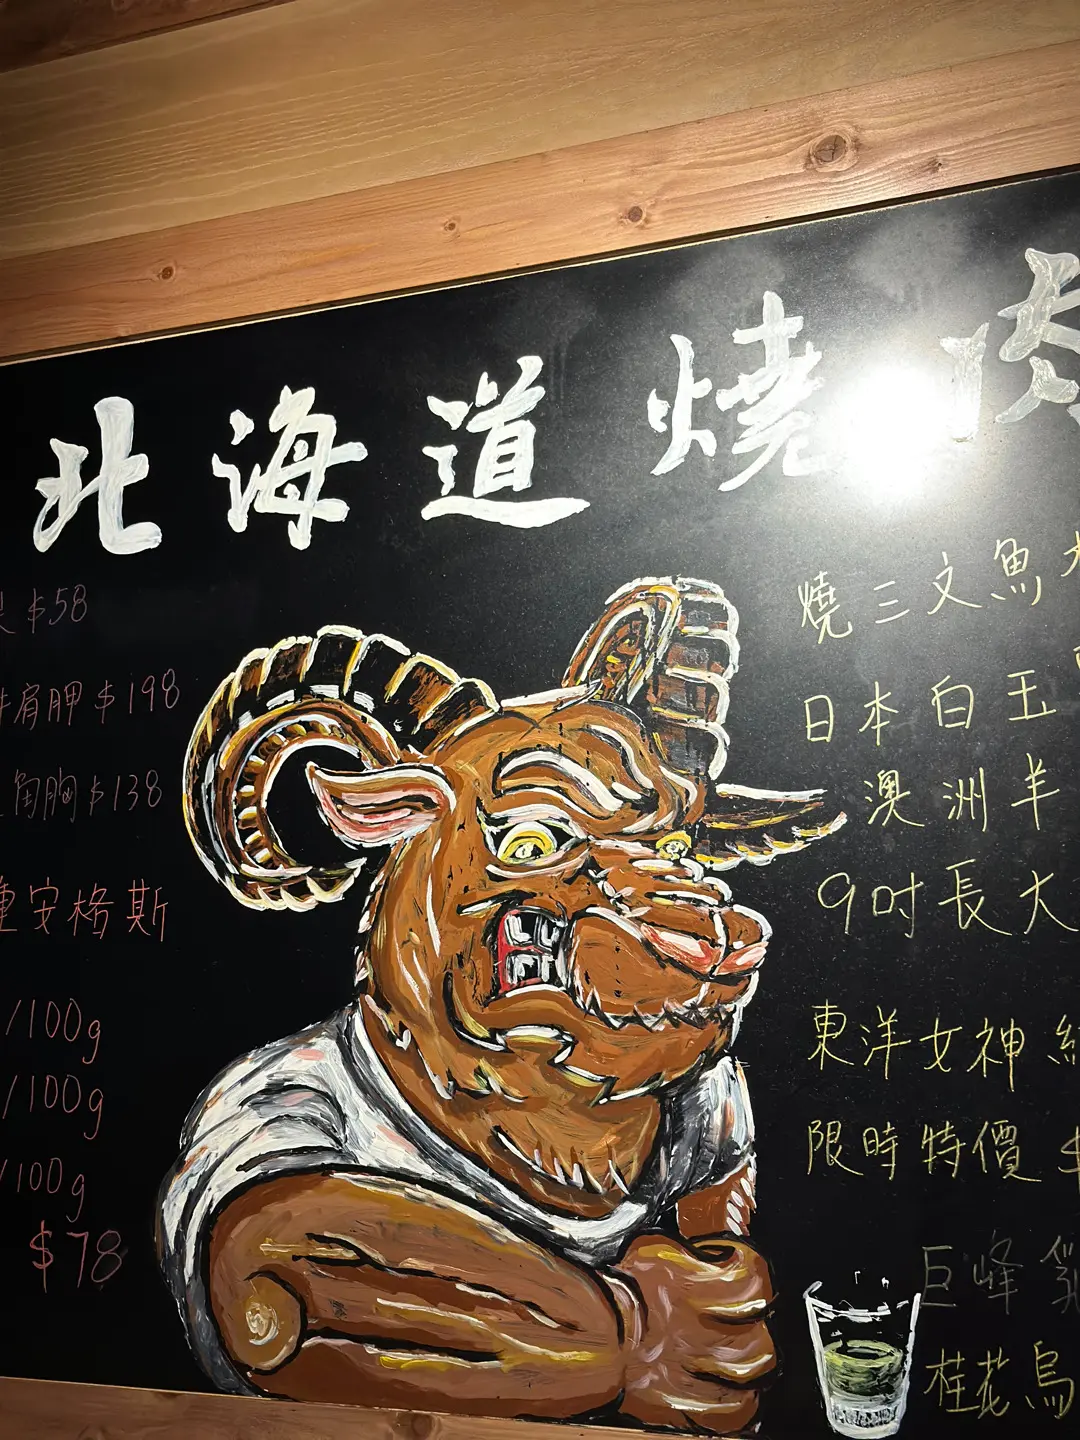 北海道燒肉
$58
肩胛 $198
角胸 $138
安格斯
/100g
/100g
/100g
$78
燒三文魚
日本白玉
澳洲羊
9吋長大
東洋女神
限時特價 $
巨峰乳
桂花烏